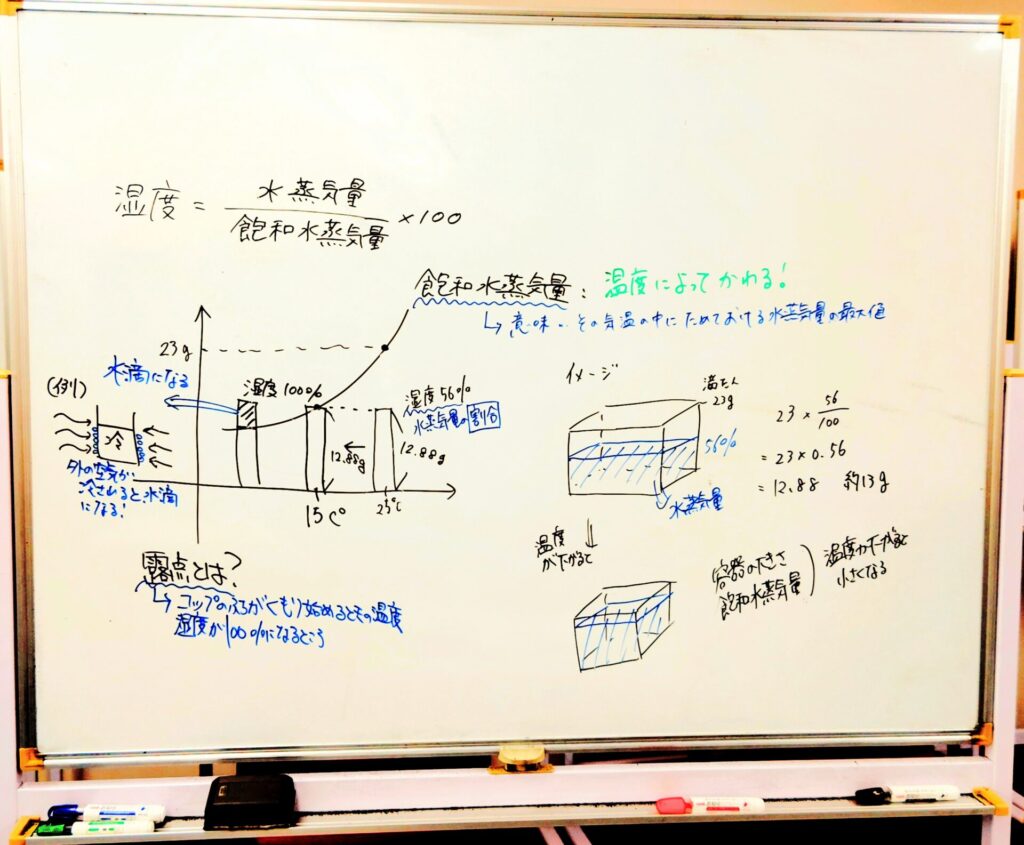 湿度 = 水蒸気量 / 飽和水蒸気量 ×100
飽和水蒸気量: 温度によってかわる!
↳ 意味… その気温の中にためておける水蒸気量の最大値
23g
水滴になる
湿度 100%
湿度 56%
水蒸気量の割合
12.88g
12.88g
15C°
25℃
(例)
冷
外の空気が
冷さめると水滴
になる!
露点とは?
↳ コップのふちがくもり始めるときの温度
湿度が100%になるところ
イメージ
満たん
23g
56%
水蒸気量
23 × 56/100
= 23×0.56
= 12.88 約13g
温度
が下がると
容器の大きさ
飽和水蒸気量
温度が下がると
小さくなる